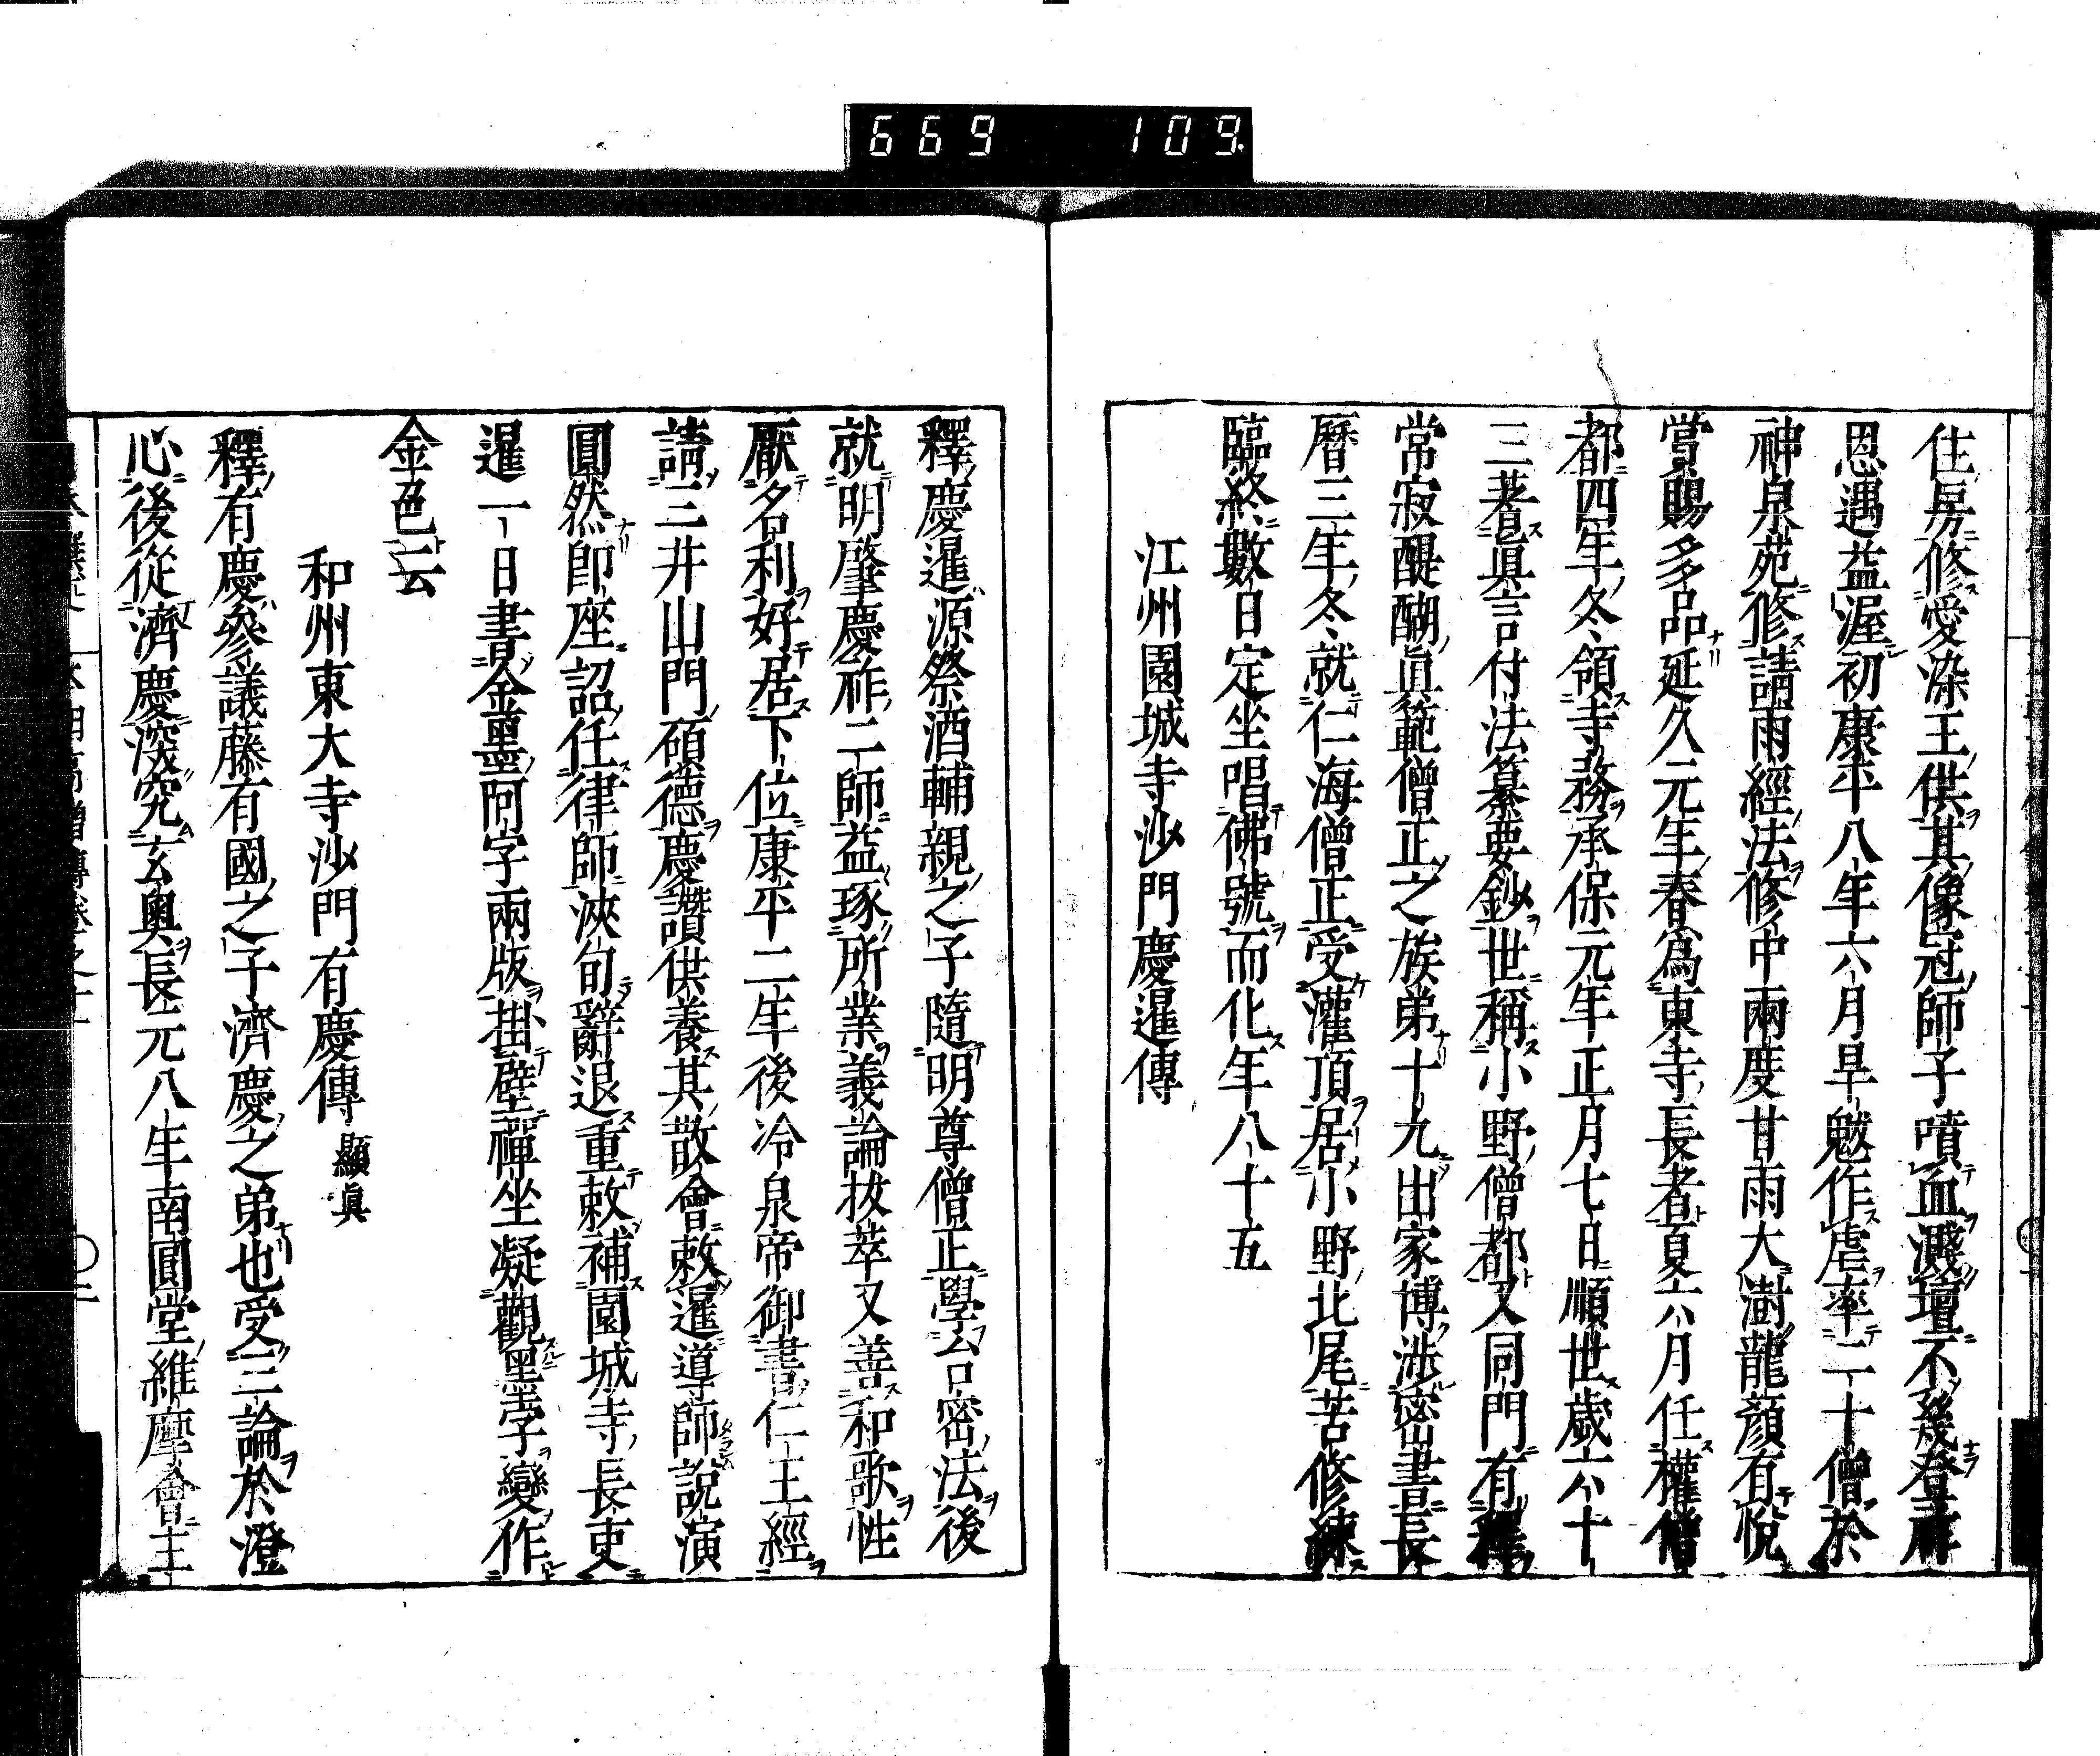 669 109
住房修愛染王供其像冠師子噴血濺壇不幾登祚
恩遇益渥初康平八年六月旱魃作虐率二十僧於
神泉苑修請雨經法修中兩度甘雨大澍龍顏有悅
賞賜多品延久元年春爲東寺長者夏六月任權僧
都四年冬領寺務承保元年正月七日順世歲六十
三著眞言付法纂要鈔世稱小野僧都又同門有
常寂醍醐眞範僧正之族弟十九出家博涉密書長
曆三年冬就仁海僧正受灌頂居小野北尾苦修練
臨終數日定坐唱佛號而化年八十五
江州園城寺沙門慶暹傳
釋慶暹源祭酒輔親之子隨明尊僧正學台密法後
就明肇慶祚二師益琢所業義論拔萃又善和歌性
厭名利好居下位康平二年後冷泉帝御書仁王經
請三井山門碩德慶讚供養其散會敕暹導師說演
圓然卽座詔任律師浹旬辭退重敕補園城寺長吏
暹一日書金墨阿字兩版掛壁禪坐凝觀墨字變作
金色云
和州東大寺沙門有慶傳 顯眞
釋有慶參議藤有國之子濟慶之弟也受三論於澄
心後從濟慶深究玄奧長元八年南圓堂維摩會主